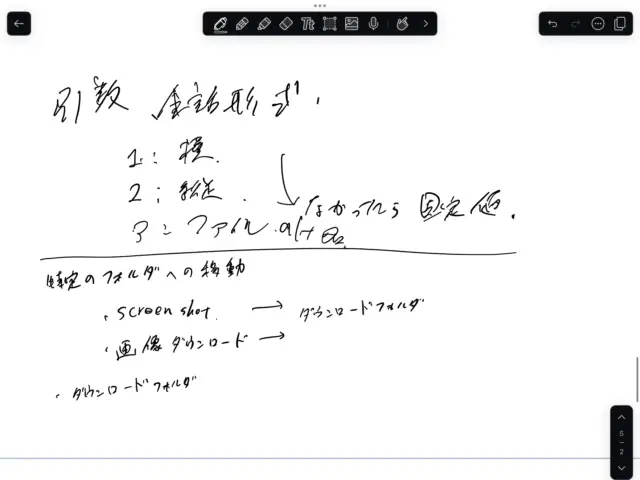 Tt
引数 形式.
1: 横.
2: 縦.
3: ファイル なかったら 固定値.
特定のフォルダへの移動
・screen shot. → ダウンロードフォルダ
・画像ダウンロード →
・ダウンロードフォルダ
5
2